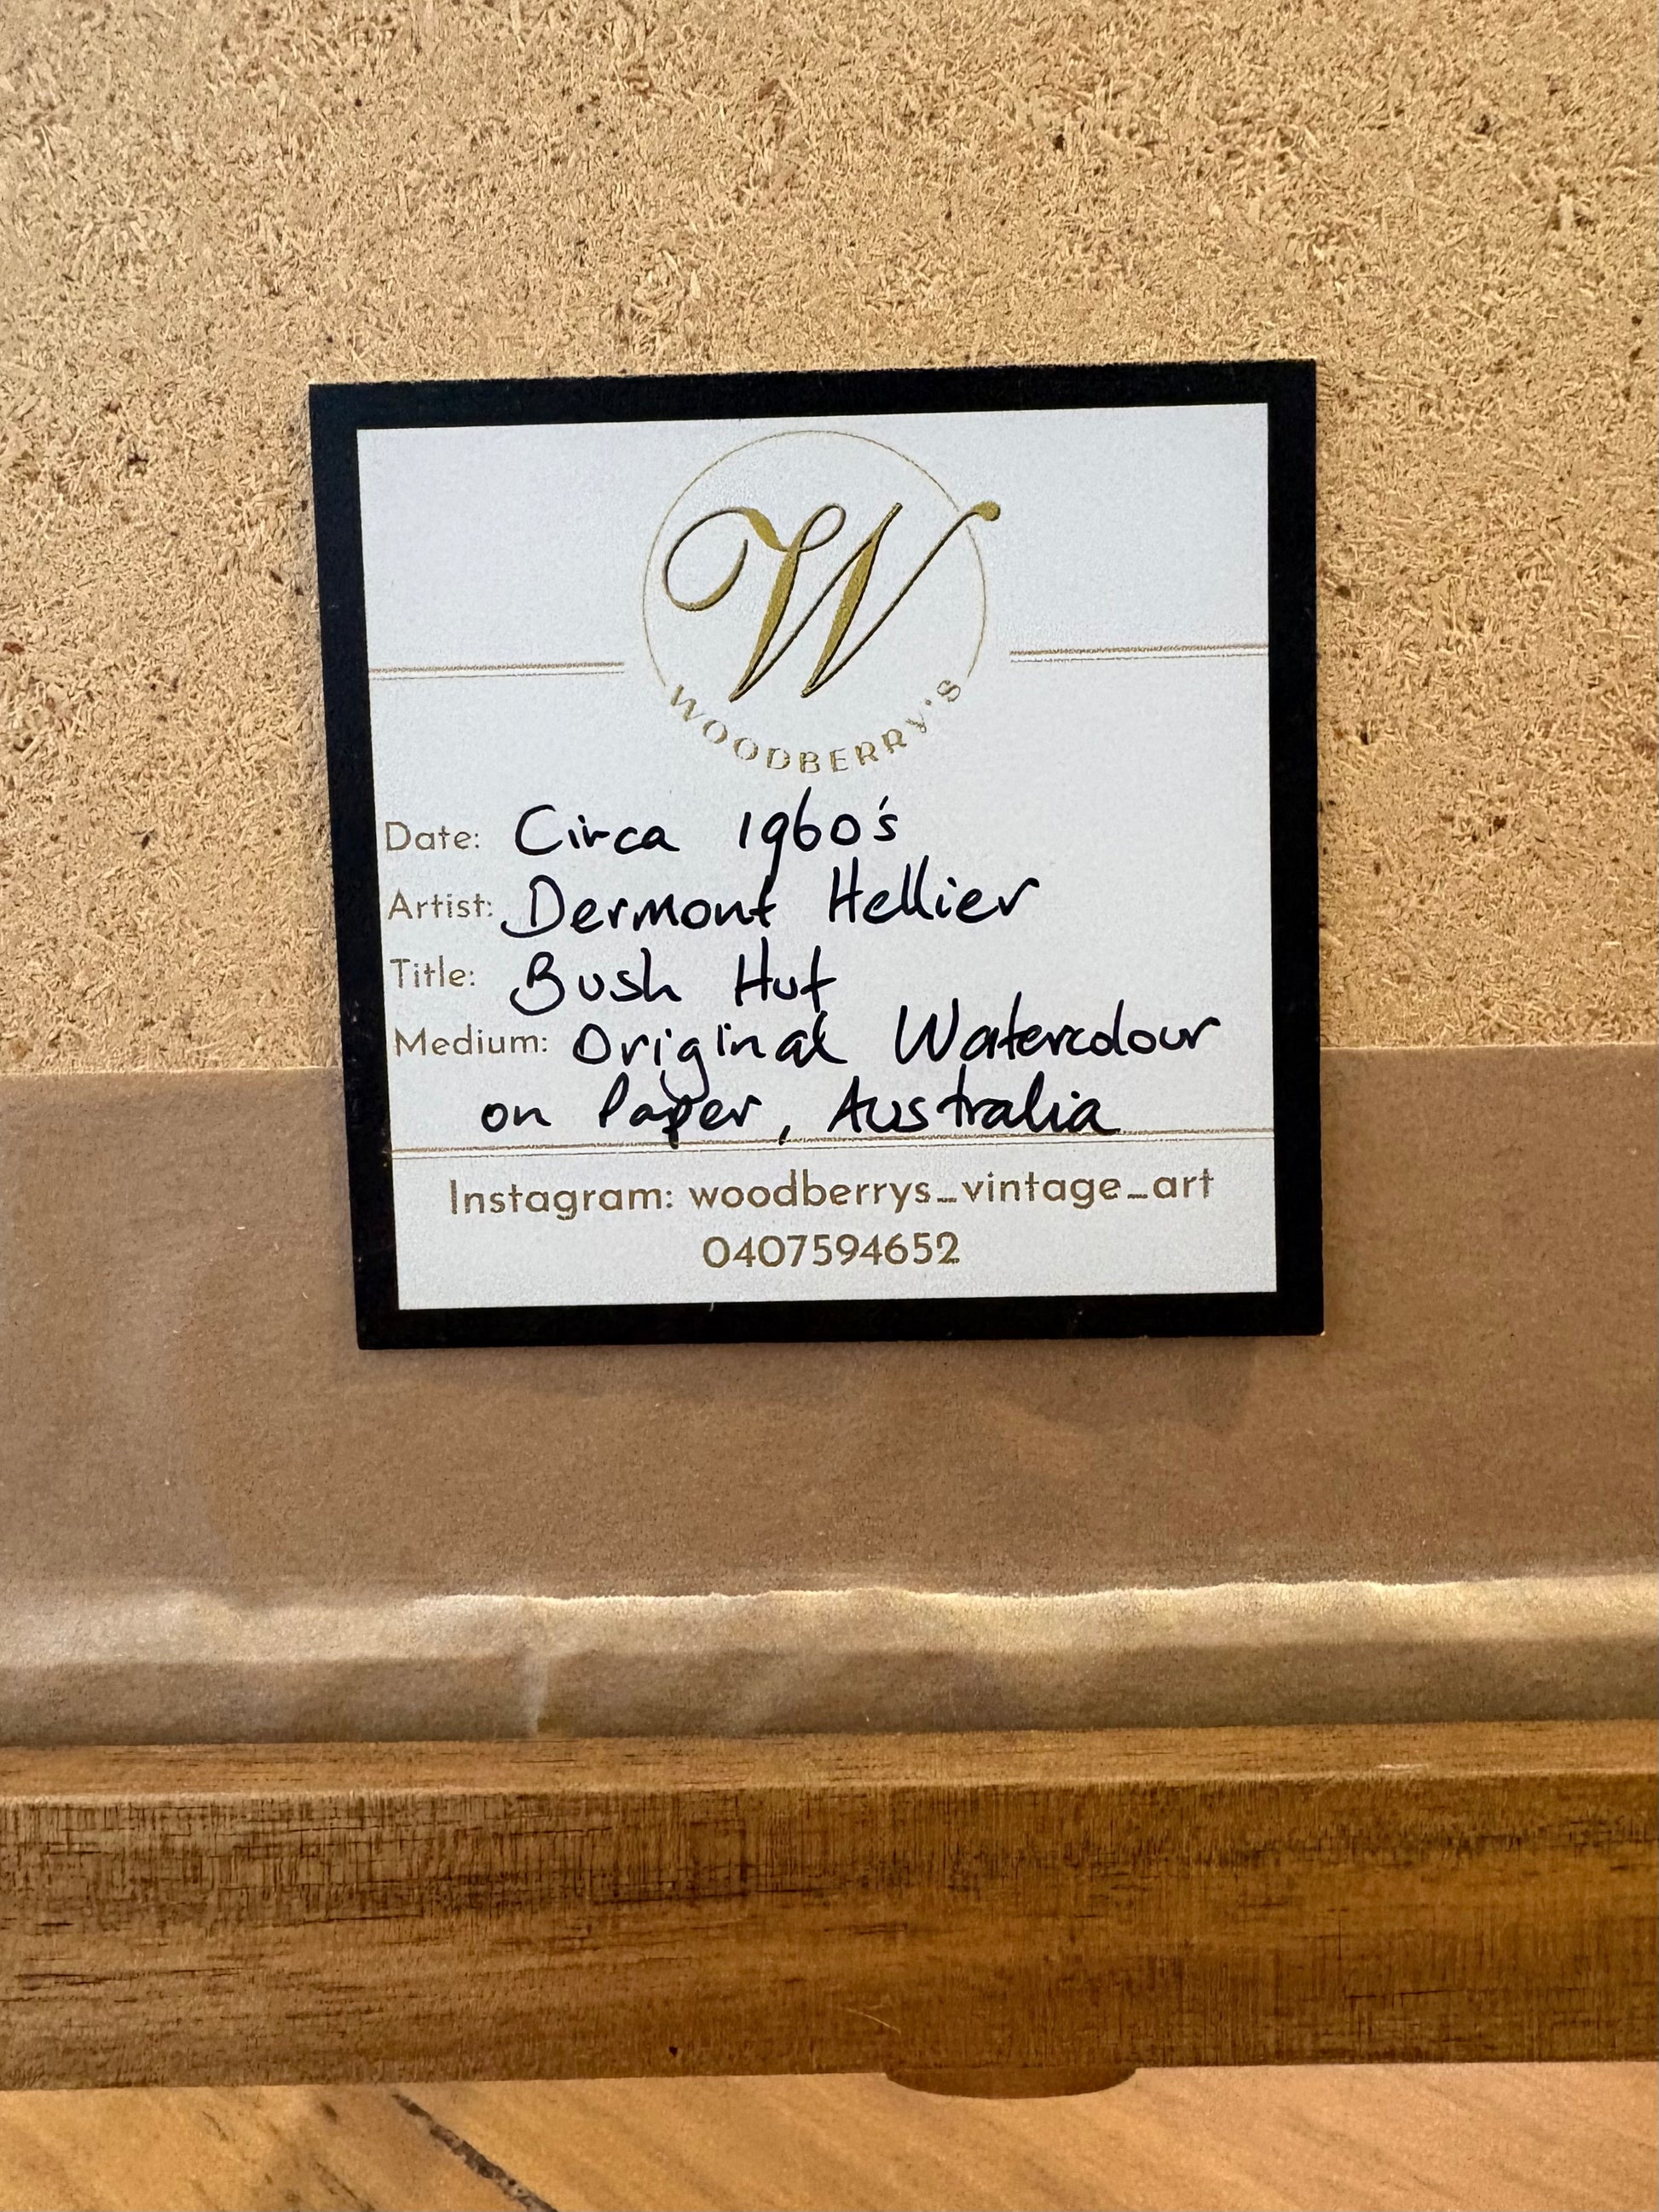 W
WOODBERRY'S
Date: Circa 1960's
Artist: Dermont Hellier
Title: Bush Hut
Medium: Original Watercolour
on Paper, Australia
Instagram: woodberrys_vintage_art
0407594652